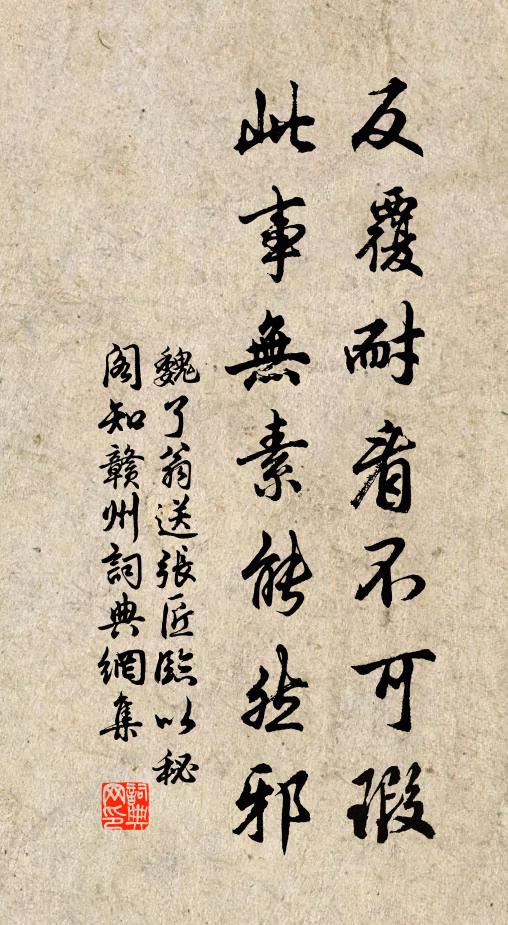 反覆耐看不可瑕
此事無素能然邪
魏了翁送張匠臨以秘
阁知贛州詞典網集
詞典
网印